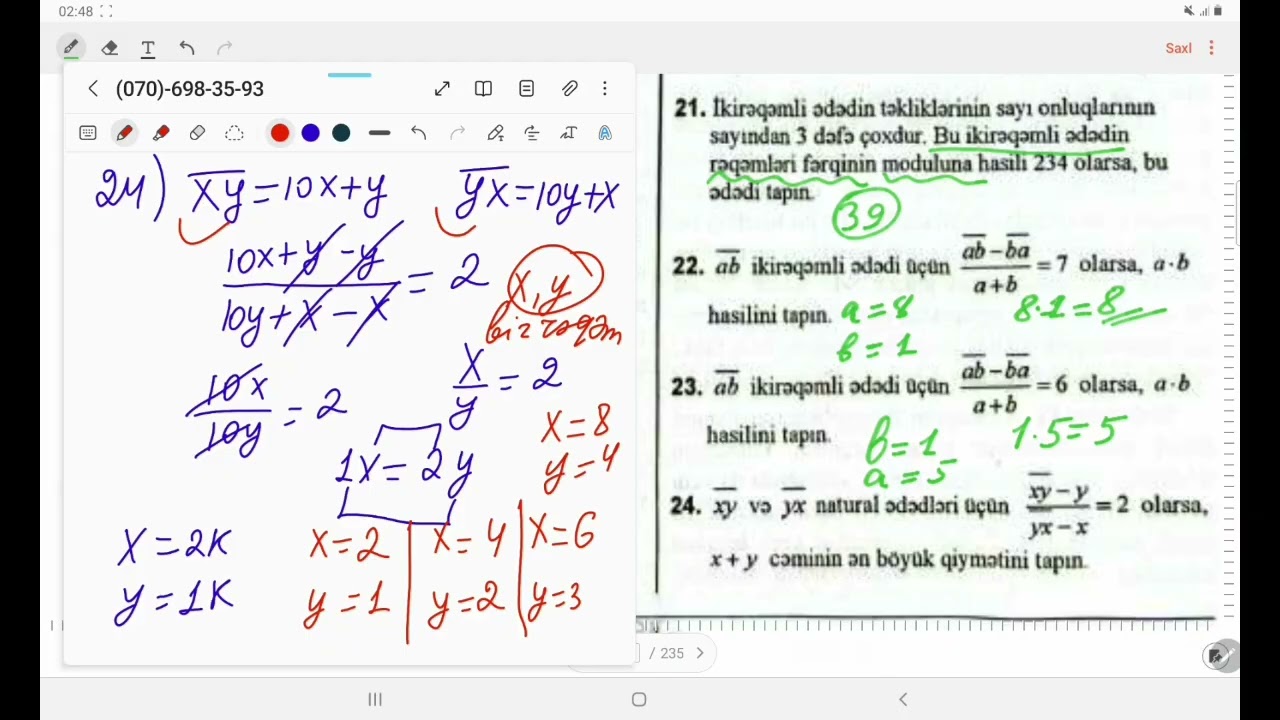 02:48
T
Saxl
(070)-698-35-93
24) x̅y̅=10x+y y̅x̅=10y+x
(10x+y-y)/(10y+x-x) = 2
x, y
bir rəqəm
10x/10y = 2
x/y = 2
x=8
y=4
1x=2y
x=2k
y=1k
x=2 | x=4 | x=6
y=1 | y=2 | y=3
21. İkirəqəmli ədədin təkliklərinin sayı onluqlarının
sayından 3 dəfə çoxdur. Bu ikirəqəmli ədədin
rəqəmləri fərqinin moduluna hasili 234 olarsa, bu
ədədi tapın.
39
22. a̅b̅ ikirəqəmli ədədi üçün (a̅b̅-b̅a̅)/(a+b) = 7 olarsa, a·b
hasilini tapın. a=8 8·1=8
b=1
23. a̅b̅ ikirəqəmli ədədi üçün (a̅b̅-b̅a̅)/(a+b) = 6 olarsa, a·b
hasilini tapın. b=1 1·5=5
a=5
24. x̅y̅ və y̅x̅ natural ədədləri üçün (x̅y̅-y)/(y̅x̅-x) = 2 olarsa,
x+y cəminin ən böyük qiymətini tapın.
/ 235